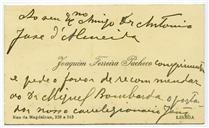 Ao seu Exmo Amigo Dr Antonio
José d'Almeida
Joaquim Ferreira Pacheco cumprimenta
e pede o favor de recommendar
ao Dr Miguel Bombarda o
dor nosso correligionario
Rua da Magdalena, 238 a 242
LISBOA